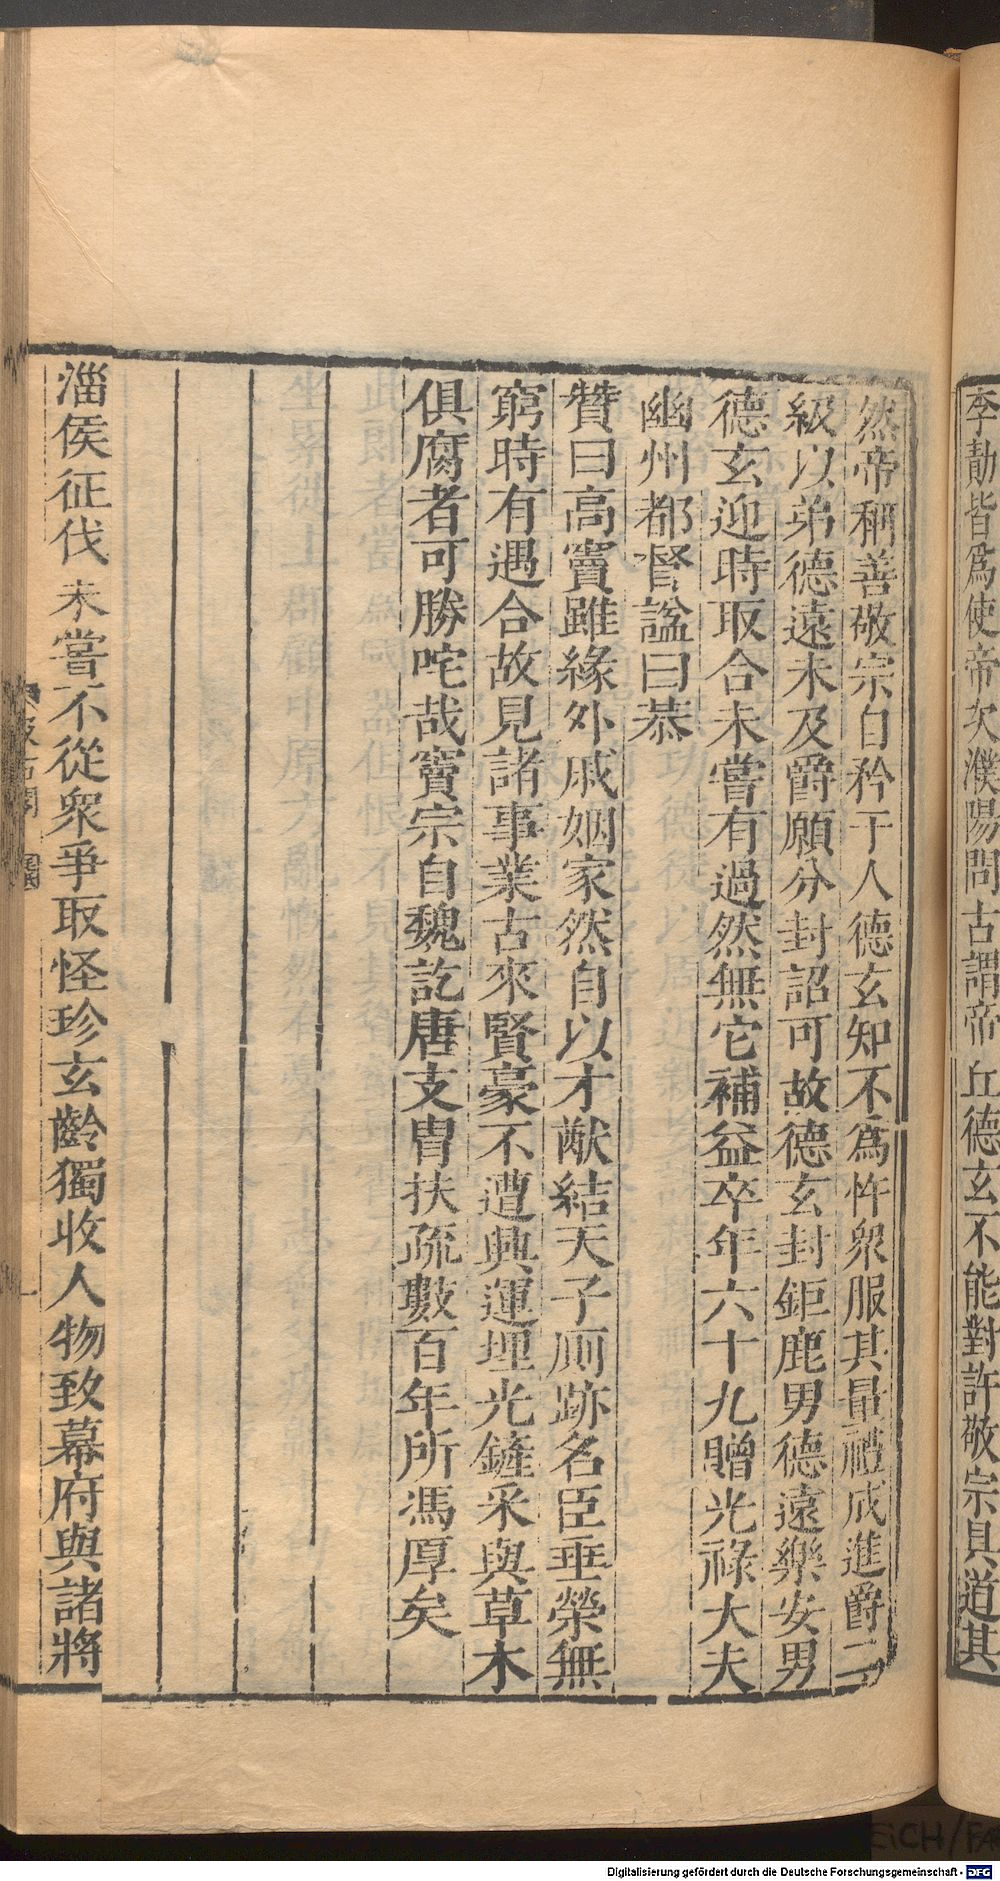 李勣皆爲使帝次濮陽問古謂帝丘德玄不能對許敬宗具道其
然帝稱善敬宗自矜于人德玄知不爲忤衆服其量禮成進爵二
級以弟德遠未及爵願分封詔可故德玄封鉅鹿男德遠樂安男
德玄迎時取合未嘗有過然無它補益卒年六十九贈光祿大夫
幽州都督諡曰恭
贊曰高竇雖緣外戚姻家然自以才猷結天子厠跡名臣垂榮無
窮時有遇合故見諸事業古來賢豪不遭興運埋光鏟采與草木
俱腐者可勝咤哉竇宗自魏訖唐支胄扶疏數百年所馮厚矣
淄侯征伐未嘗不從衆爭取怪珍玄齡獨收人物致幕府與諸將
Digitalisierung gefördert durch die Deutsche Forschungsgemeinschaft - DFG